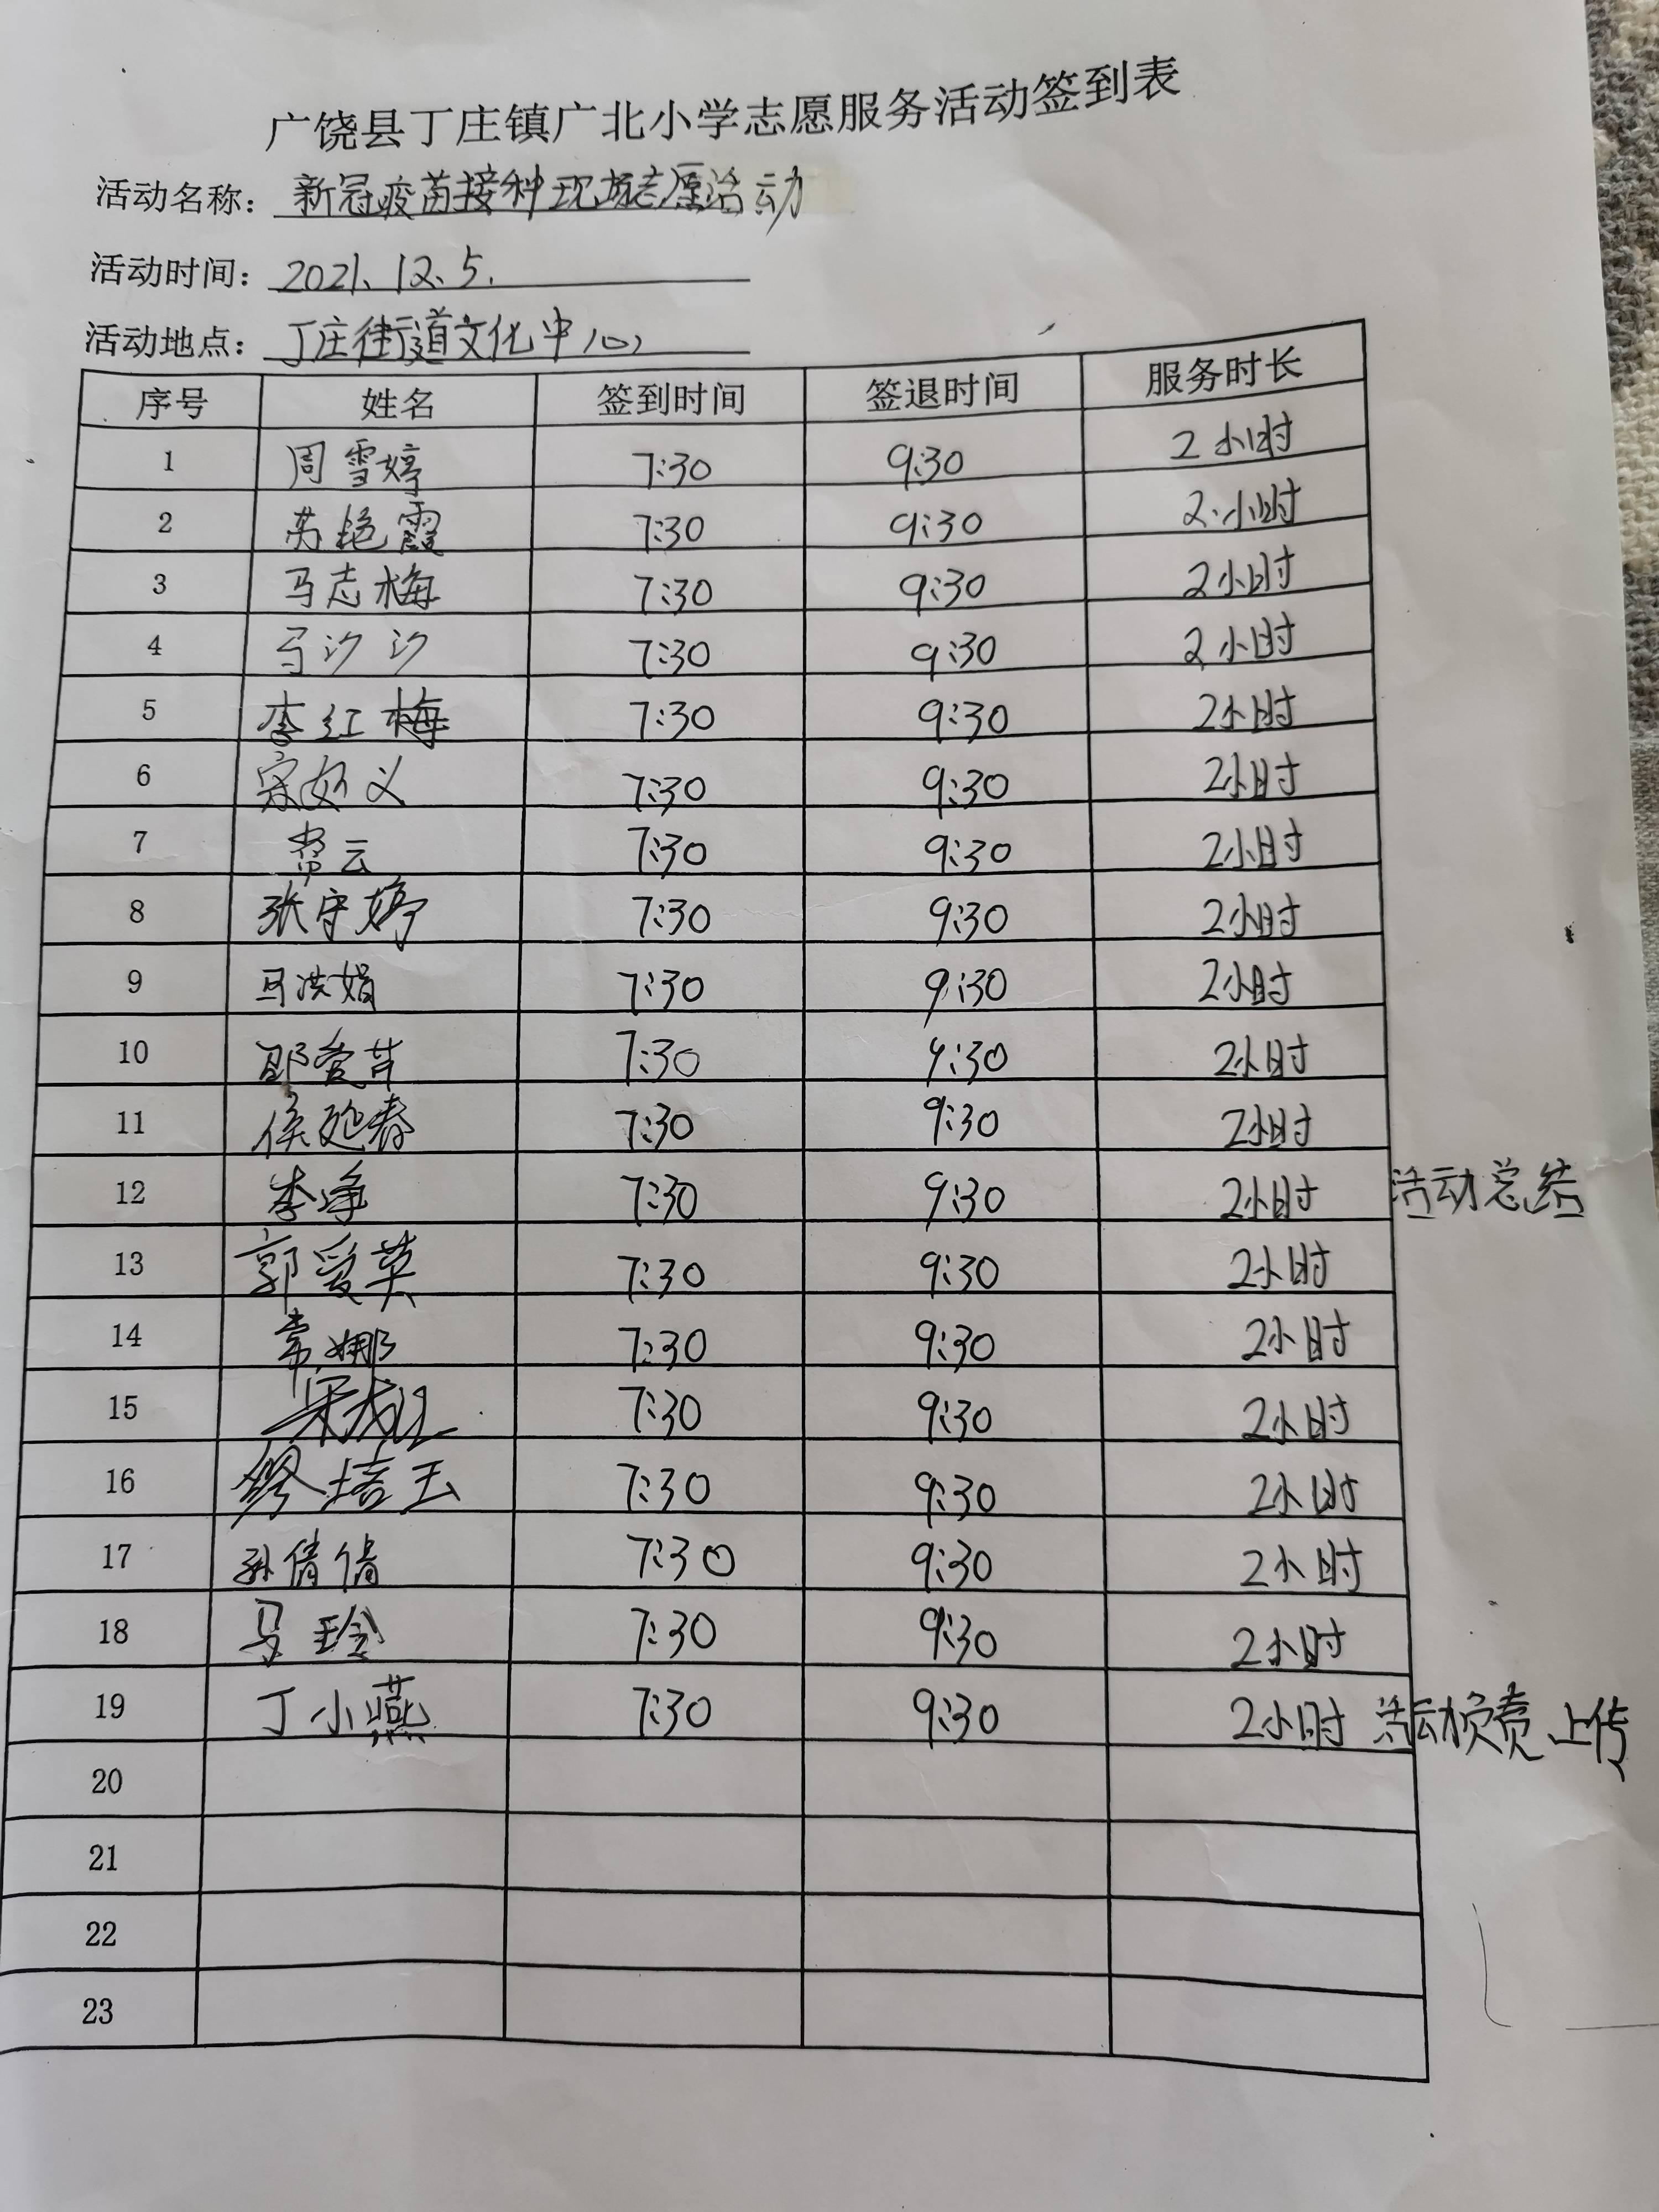 广饶县丁庄镇广北小学志愿服务活动签到表
活动名称：新冠疫苗接种现场志愿活动
活动时间：2021.12.5.
活动地点：丁庄街道文化中心
序号 姓名 签到时间 签退时间 服务时长
1 周雪婷 7:30 9:30 2小时
2 苏艳霞 7:30 9:30 2小时
3 马志梅 7:30 9:30 2小时
4 马汐汐 7:30 9:30 2小时
5 李红梅 7:30 9:30 2小时
6 7:30 9:30 2小时
7 常云 7:30 9:30 2小时
8 张守婷 7:30 9:30 2小时
9 马洪娟 7:30 9:30 2小时
10 邵爱芹 7:30 9:30 2小时
11 侯延春 7:30 9:30 2小时
12 李峥 7:30 9:30 2小时 活动总结
13 郭爱英 7:30 9:30 2小时
14 常娜 7:30 9:30 2小时
15 7:30 9:30 2小时
16 缪培玉 7:30 9:30 2小时
17 孙倩倩 7:30 9:30 2小时
18 马玲 7:30 9:30 2小时
19 丁小燕 7:30 9:30 2小时 活动负责上传
20
21
22
23